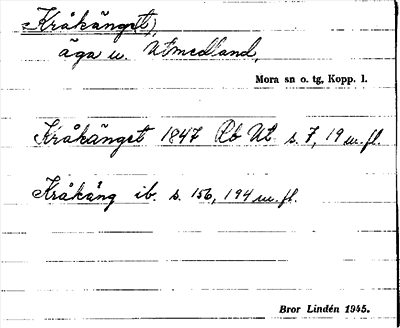 Kråkänget,
äga u. Utmedland,
Mora sn o. tg, Kopp. l.
Kråkänget 1847 Rb Ut s. 7, 19 m. fl.
Kråkäng ib. s. 156, 194 m. fl.
Bror Lindén 1945.